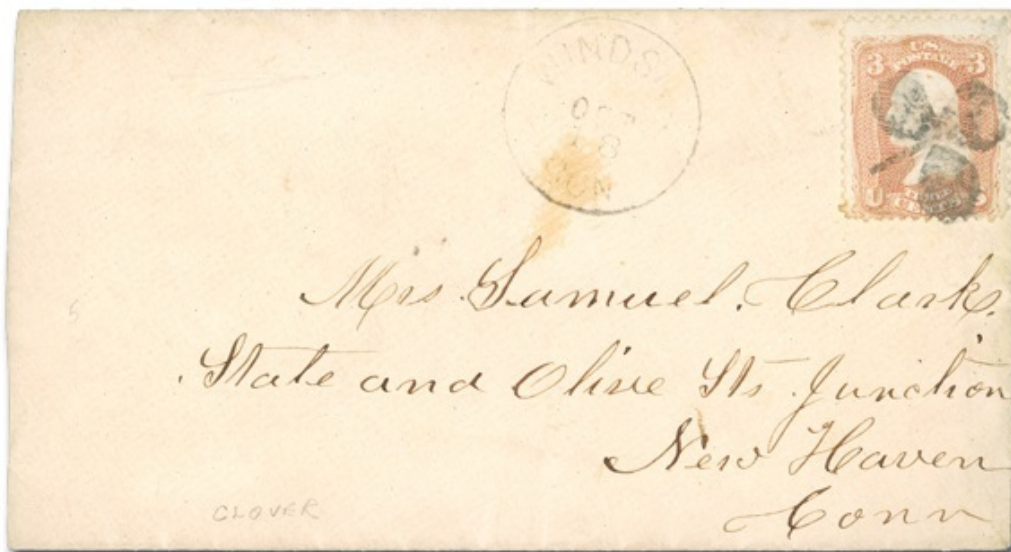 WINDSOR
OCT
18
CON
U.S.
POSTAGE
3 3
U S
CENTS
Mrs. Samuel. Clark.
State and Olive Sts. Junction
New Haven
Conn
5
CLOVER